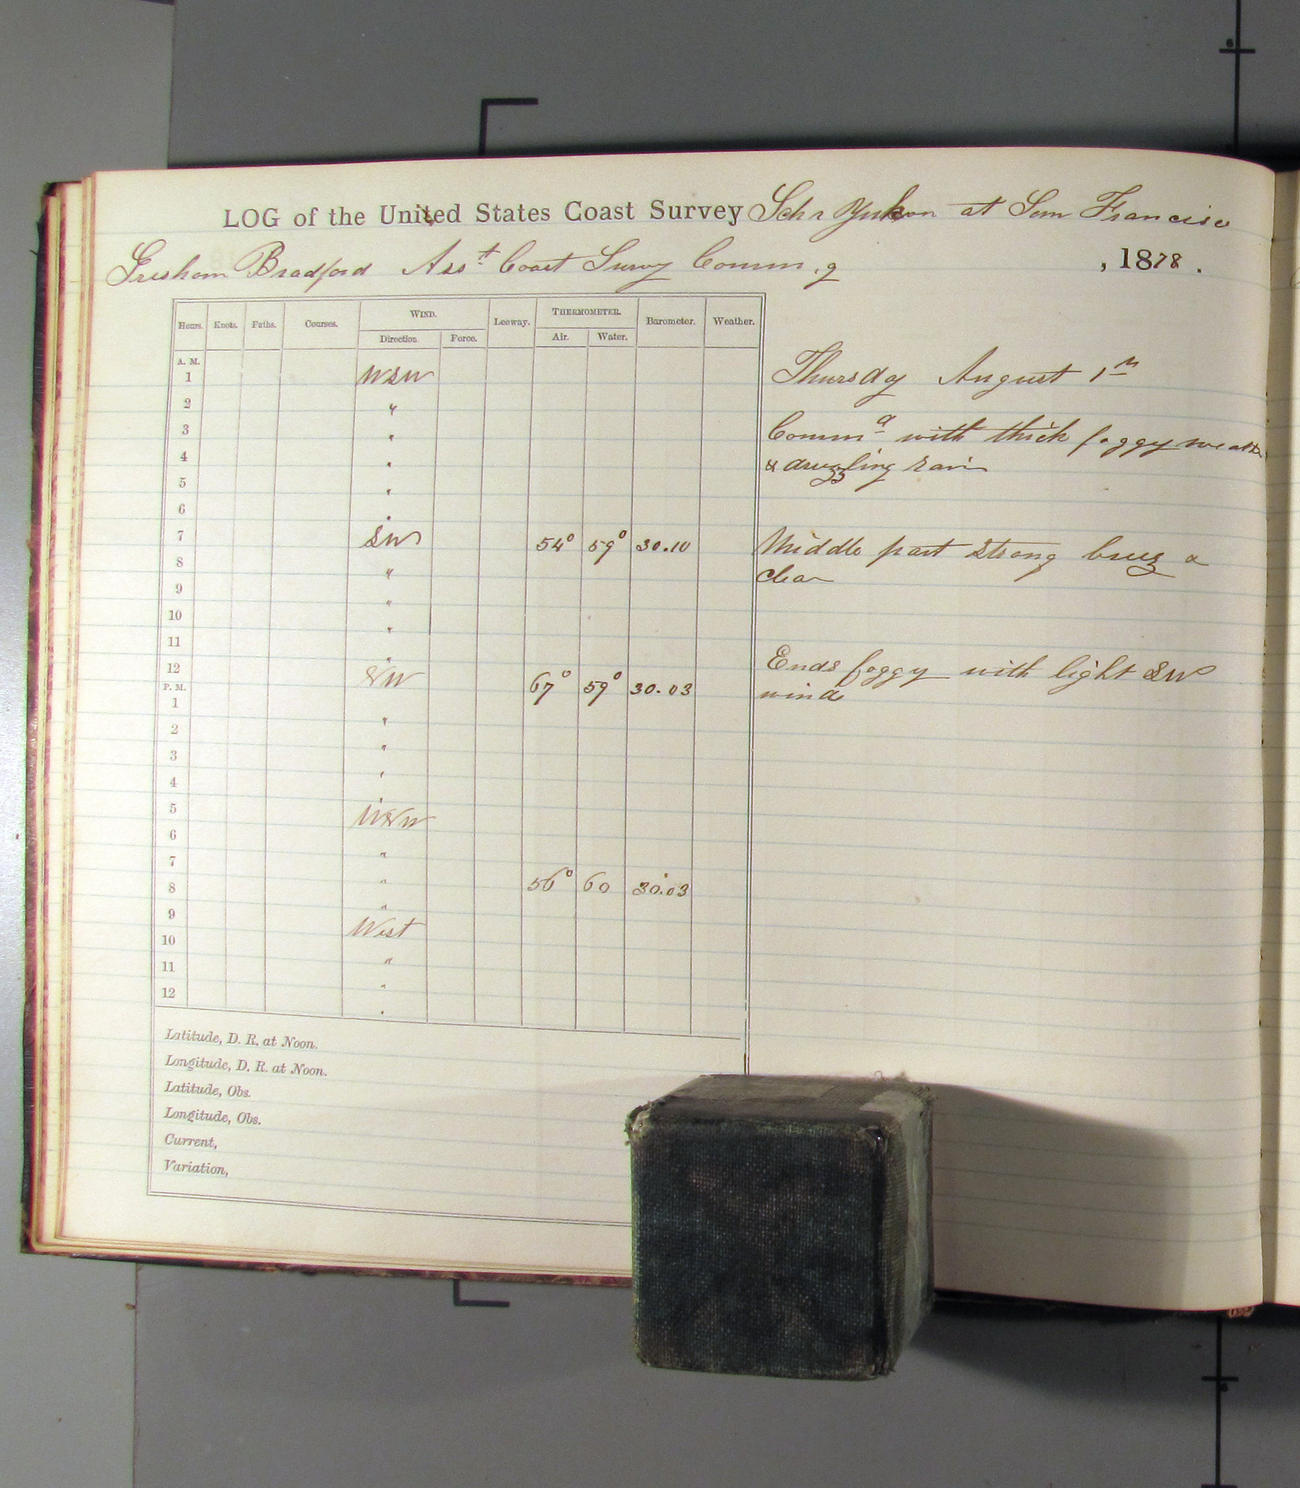 LOG of the United States Coast Survey Schr Yukon at San Francisco
Gresham Bradford Asst Coast Survy Comm.g , 1878.
Hours. Knots. Faths. Courses. WIND. Leeway. THERMOMETER. Barometer. Weather.
Direction Force. Air. Water.
A. M.
1 WSW Thursday August 1st
2 "
3 " Commd with thick foggy weath
4 " & druzzling rain
5 "
6 "
7 SW 54° 59° 30.10 Middle part strong breez &
8 " clear
9 "
10 "
11 "
12 SW 67° 59° 30.03 Ends foggy with light SW
P. M. wind
1
2 "
3 "
4 "
5 " WSW
6
7 "
8 " 56° 60 30.03
9 "
10 West
11 "
12 "
"
Latitude, D. R. at Noon.
Longitude, D. R. at Noon.
Latitude, Obs.
Longitude, Obs.
Current,
Variation,